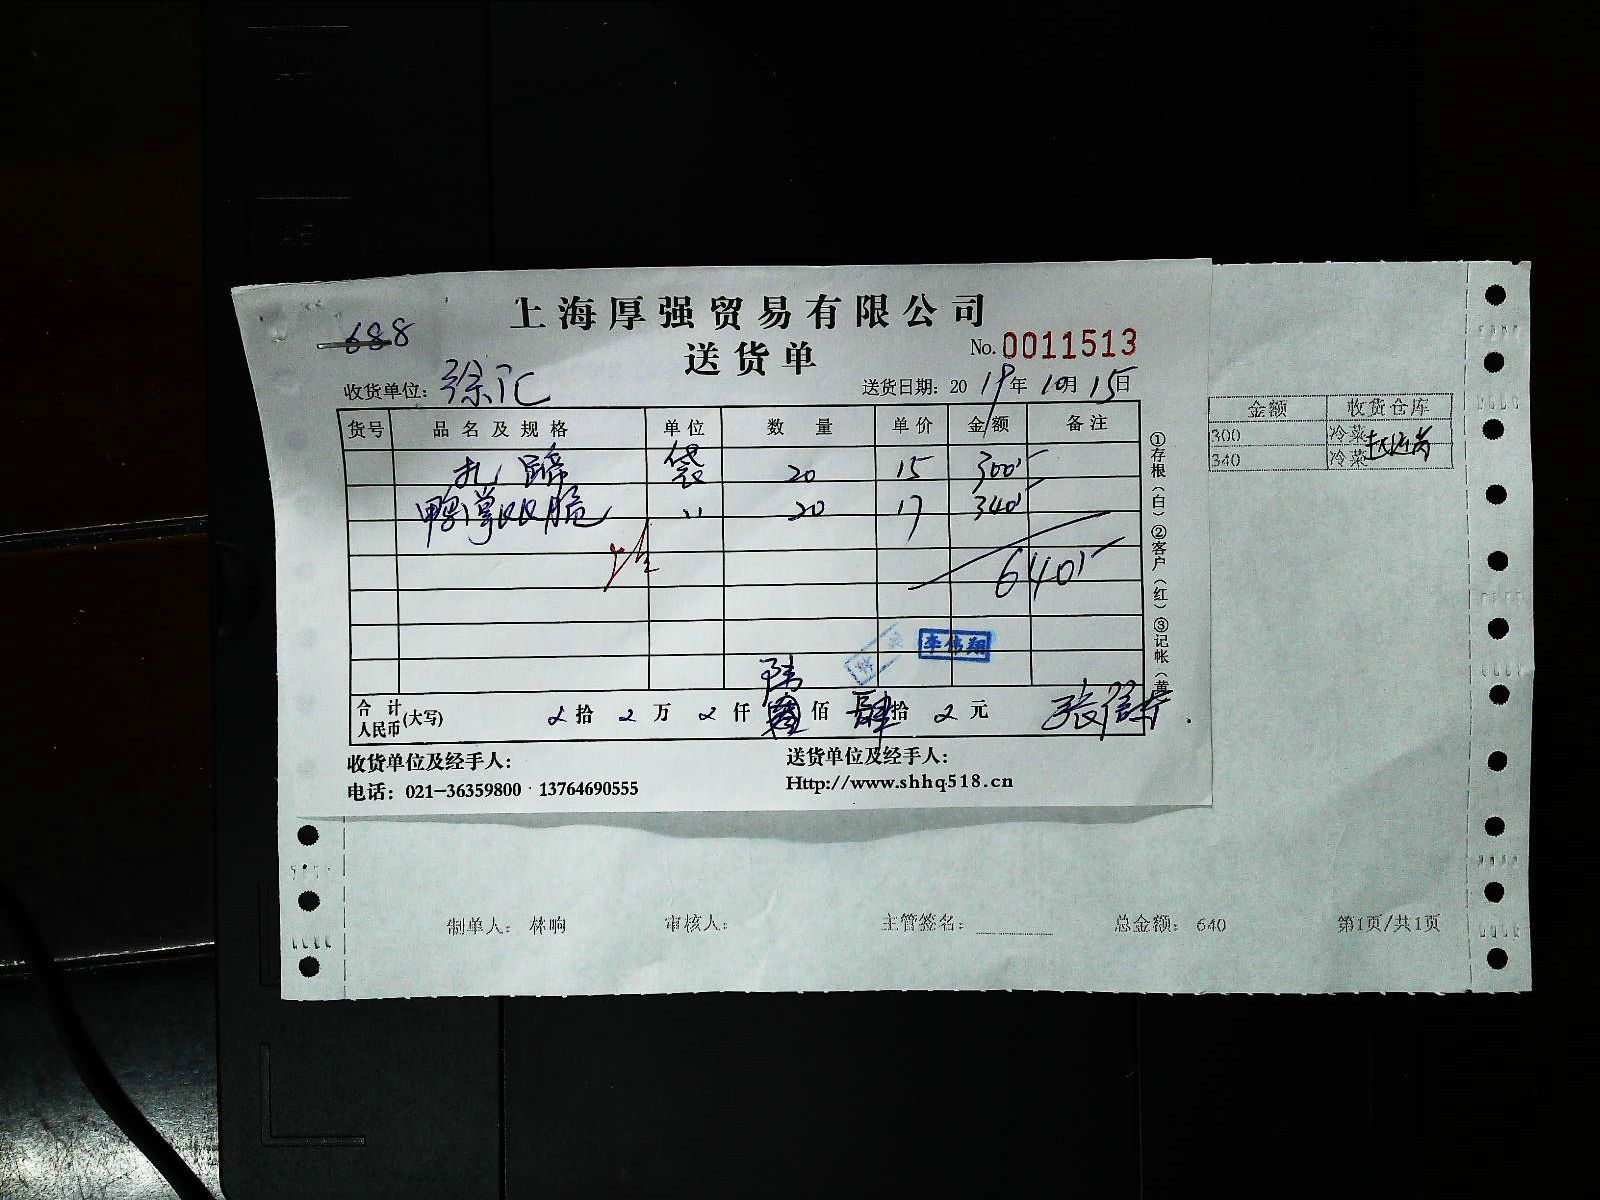 上海厚强贸易有限公司
688
送货单
No. 0011513
收货单位: 徐汇
送货日期: 2019年10月15日
货号 品名及规格 单位 数量 单价 金额 备注
扎蹄 袋 20 15 300
鸭掌双脆 〃 20 17 340
640
李伟翔
合计人民币(大写) 拾 万 仟 陆佰 肆拾 元
收货单位及经手人:
送货单位及经手人:
电话: 021-36359800 13764690555
Http://www.shhq518.cn
①存根(白) ②客户(红) ③记帐(黄
金额 收货仓库
300 冷菜
340 冷菜
制单人: 林响 审核人: 主管签名: 总金额: 640 第1页/共1页